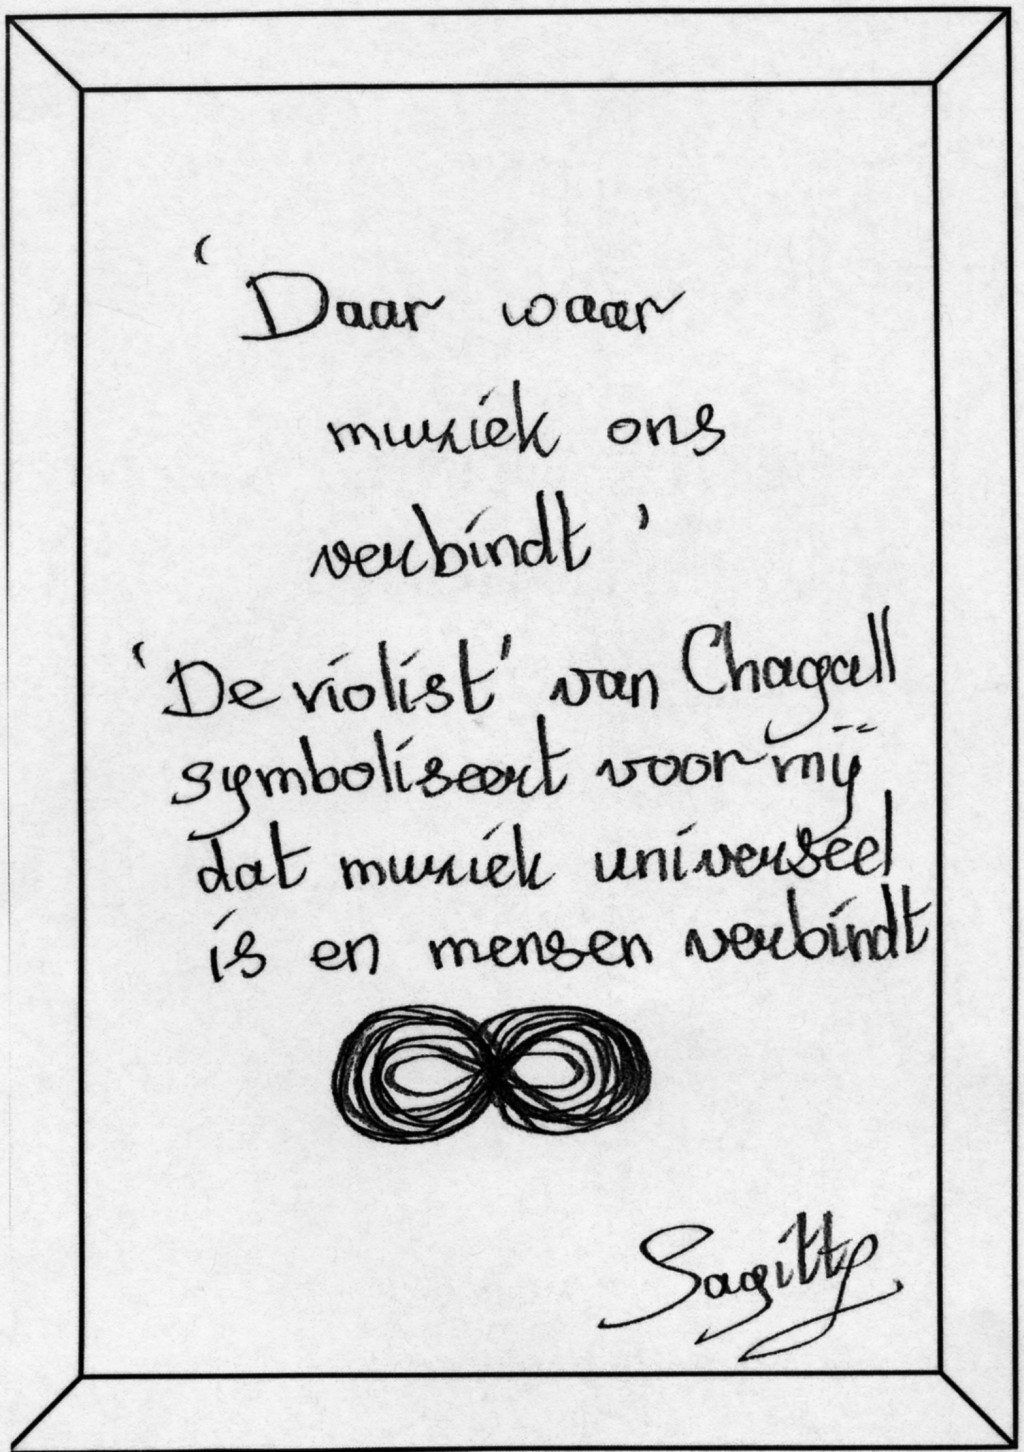 'Daar waar
muziek ons
verbindt'
'De violist' van Chagall
symboliseert voor mij
dat muziek universeel
is en mensen verbindt